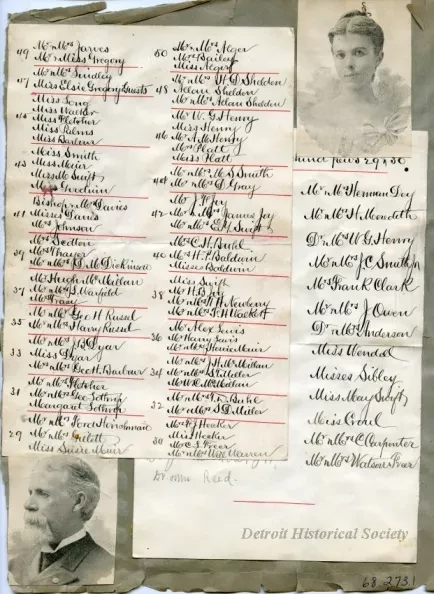 49 Mr & Mrs Jarves
Mr & Miss Gregory
Mr & Mrs Lindley
47 Miss Elsie Gregory Guests
Miss Long
Miss Walker
45 Miss Fletcher
Miss Palms
Miss Barbour
Miss Smith
43 Miss Muir
Miss M. Swift
Miss Goodwin
Bishop & Mrs Davies
41 Misses Davies
Johnson
Mr & Mrs Ledton
39 Thayer
Mr & Mrs D. M. Dickinson
Mr Hugh McMillan
37 Mr & Mrs Warfield
35 Mr & Mrs Geo H. Russel
Mr & Mrs Harry Russel
Mr & Mrs J. B. Dyar
33 Miss Dyar
Mr & Mrs Geo H Barbour
Mr & Mrs Fletcher
31 Mr & Mrs Geo Lothrop
Margaret Lothrop
Mr & Mrs
29 Mr & Mrs
Miss Susie Muir
50 Mr & Mrs Alger
Mr & Mrs Bailey
Miss Alger
Mr & Mrs H. D. Sheldon
48 Allan Sheldon
Mr & Mrs Adam Sheldon
Mr W. G. Henry
Miss Henry
46 Mr A. M. Henry
Mr & Mrs Platt
Miss Platt
Mr & Mrs M. S. Smith
44 Mr & Mrs D. Gray
Mr J. F. Joy
42 Mr & Mrs James Joy
Mr & Mrs E. Y. Swift
Mr & Mrs C. H. Buhl
40 Mr & Mrs H. P. Baldwin
Misses Baldwin
Miss Swift
38
Mr & Mrs T. H. Newberry
Mr Alex Lewis
36 Mr Harry Lewis
Mr & Mrs Howie Muir
Mr & Mrs J. H. McMillan
34
Mr & Mrs Buhl
32 Mr & Mrs S. D. Miller
Mr & Mrs F. J. Hecker
Miss Hecker
30 Mr C. L. Freer
Mr & Mrs Will Warren
29 & 30.
Mr & Mrs Herman Dey
Mr & Mrs H. Meredith
Dr & Mrs W. G. Henry
Mr & Mrs J. C. Smith Jr
Mr & Mrs Frank Clark
Mr & Mrs J Owen
Dr & Mrs Anderson
Miss Wendel
Misses Sibley
Miss May Swift
Miss
Mr & Mrs C. Carpenter
Mr & Mrs Watson Freer
Dr & Mrs Reed.
Detroit Historical Society
68.273.1